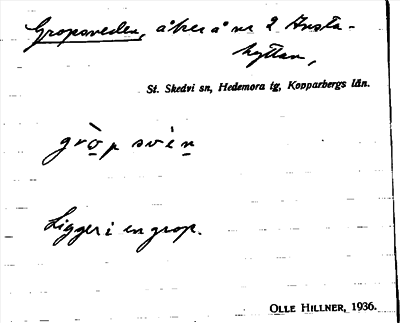 Gropsveden, åker å nr 2 Ansta-
hyttan,
St. Skedvi sn, Hedemora tg, Kopparbergs län.
gròp svèn
Ligger i en grop.
OLLE HILLNER, 1936.